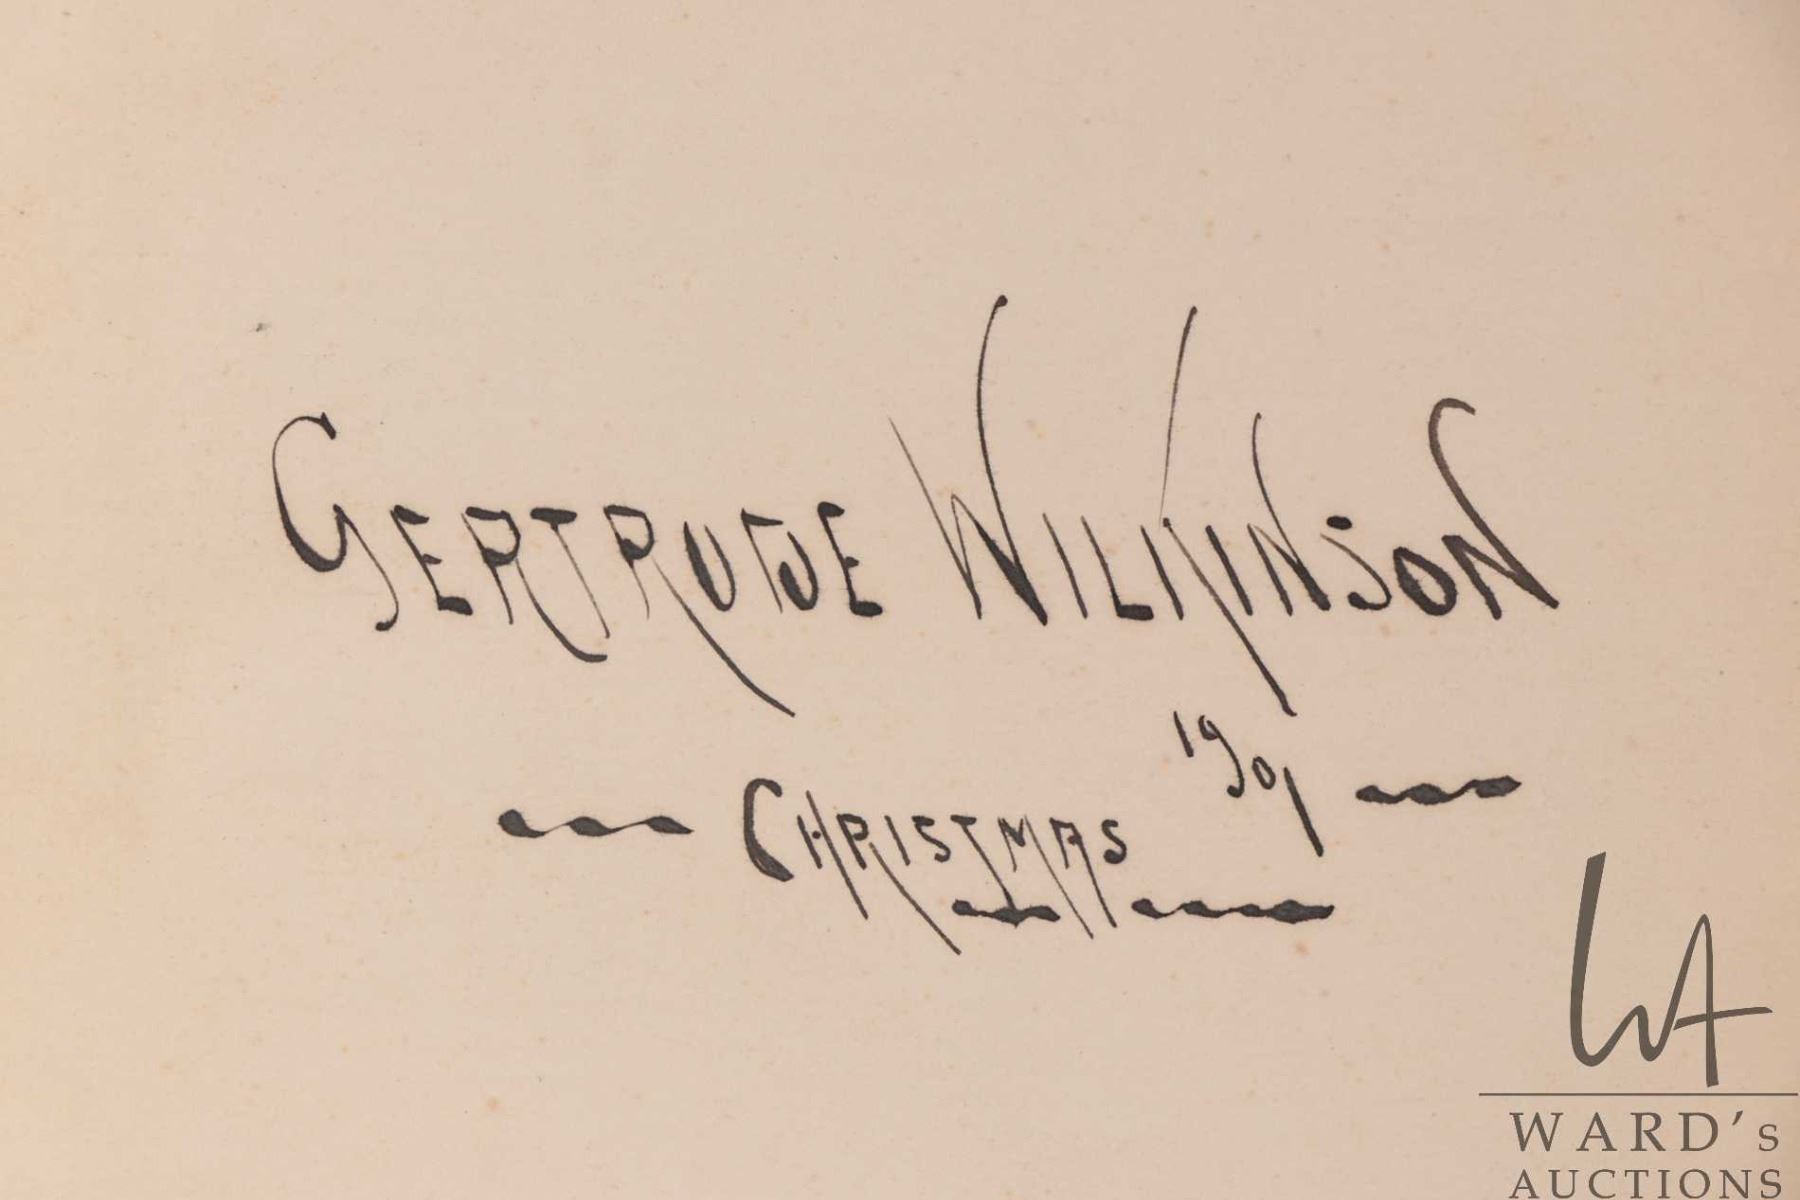 GERTRUDE WILKINSON
CHRISTMAS 1901
WA
WARD's
AUCTIONS